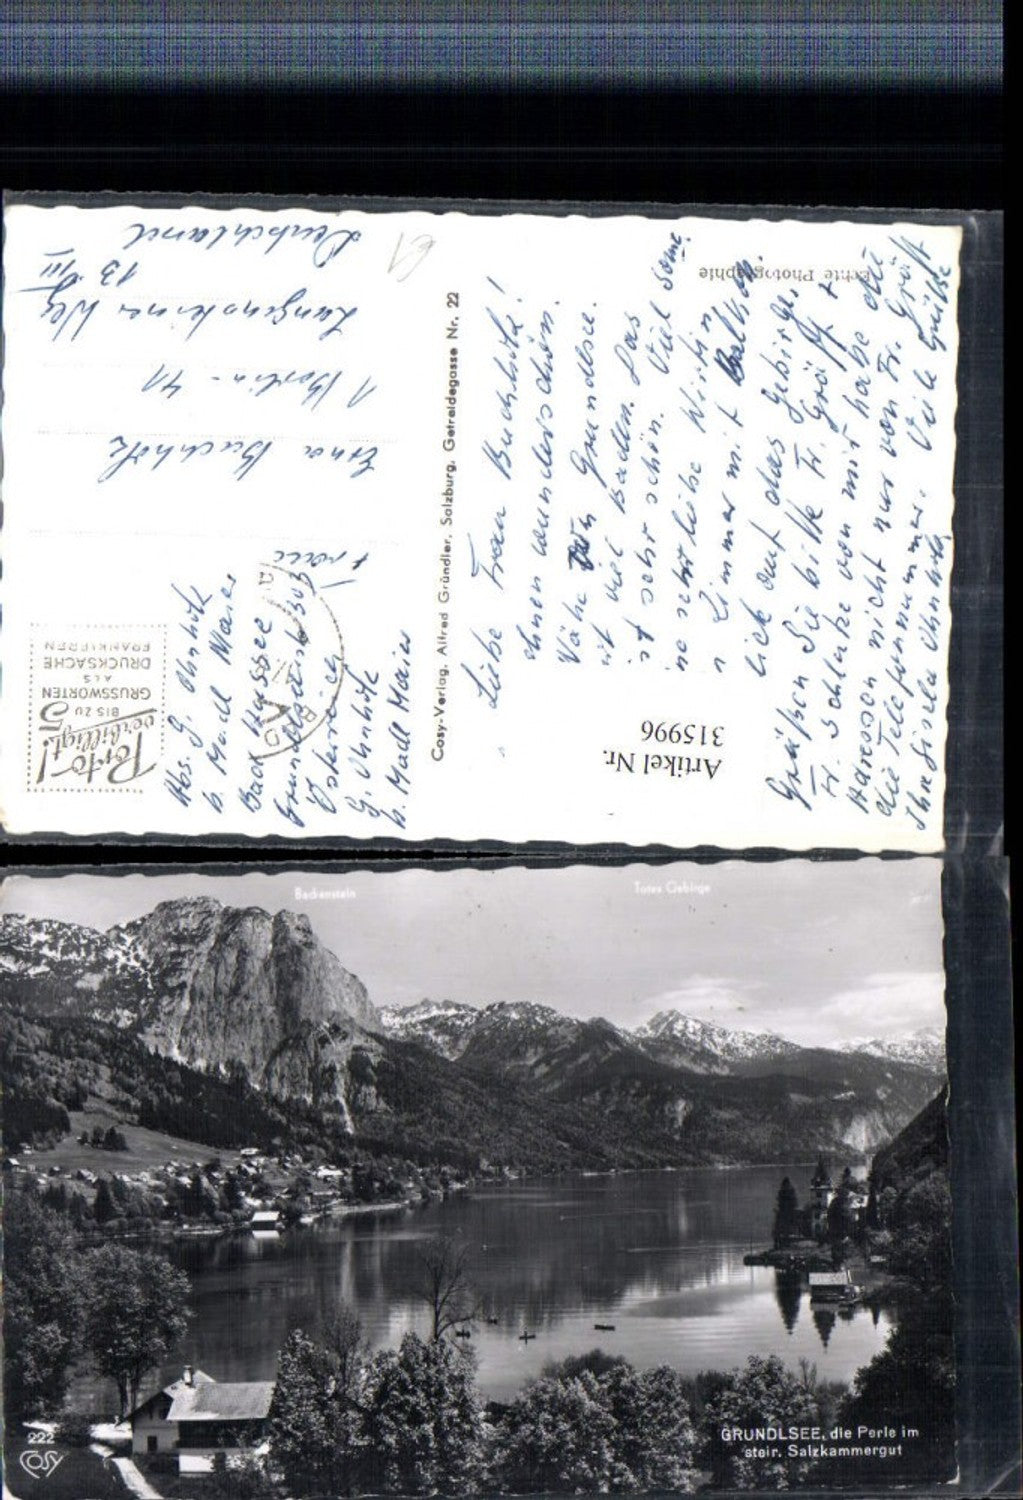 Porto-
verbilligt!
BIS ZU 5
GRUSSWORTEN
ALS
DRUCKSACHE
FRANKIEREN
Abs. G. Ohnholz
b. Madl Maier
Bad Aussee
Österreich
G. Ohnholz
b. Madl Maier
Frau
Erna Buchholz
1 Berlin - 41
Weg
13 III
Deutschland
Cosy-Verlag, Alfred Gründler, Salzburg, Getreidegasse Nr. 22
Echte Photographie
Artikel Nr.
315996
Liebe Frau Buchholz!
wunderschön.
Nähe Grundlsee.
ist viel Baden. Das
ist sehr schön. Viel
ne sehr liebe Wirtin
n Zimmer mit Balkon.
lick auf das Gebirge.
Grüßen Sie bitte Fr.
Fr. Schulze von mir habe die
Adressen nicht nur von Fr.
die Telefonnummer. Viele Grüße
Ihre Gisela Ohnholz
Backenstein
Totes Gebirge
222
COSY
GRUNDLSEE, die Perle im
steir. Salzkammergut